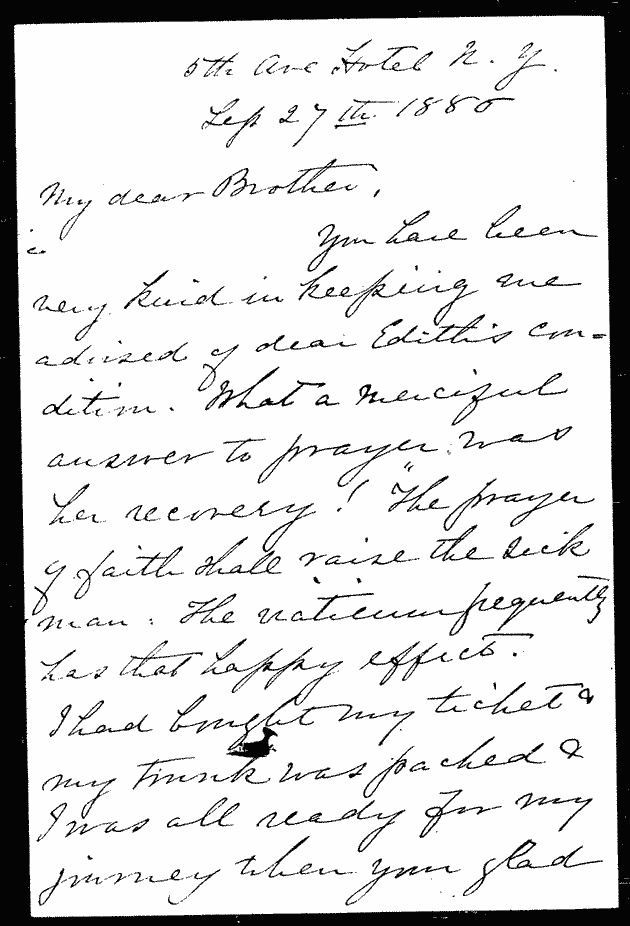 5th Ave Hotel N. Y.
Sep 27th 1880
My dear Brother,
You have been
very kind in keeping me
advised of dear Edith's con=
dition. What a merciful
answer to prayer was
her recovery! "The prayer
of faith shall raise the sick
man: The viaticum frequently
has that happy effect.
I had bought my ticket &
my trunk was packed &
I was all ready for my
journey when your glad